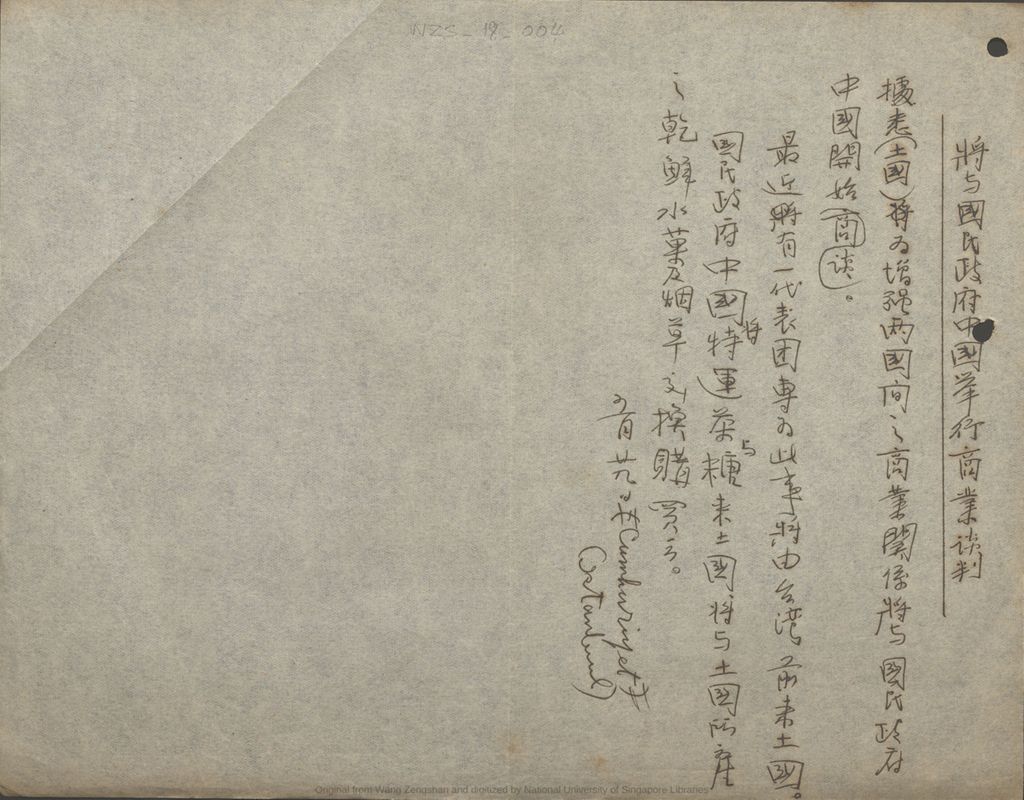 NZS-19-004
將与國民政府中国举行商業谈判
據悉(土國)將为增强两国间之商業関係將与國民政府
中國開始(商谈)。
最近將有一代表团專为此事將由台湾前来土國。
國民政府中國將特運茶与糖来土國将与土國所產
之乾鮮水菓及烟草交換購買云。
月廿九日"Cumhuriyet"
(Istanbul)
Original from Wang Zengshan and digitized by National University of Singapore Libraries